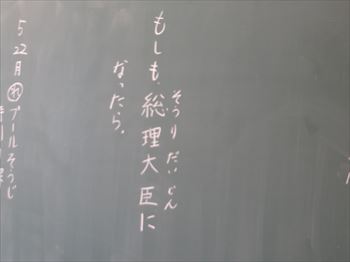 もしも、総理大臣に
そうり だいじん
なったら。
5
22
月
プールそうじ